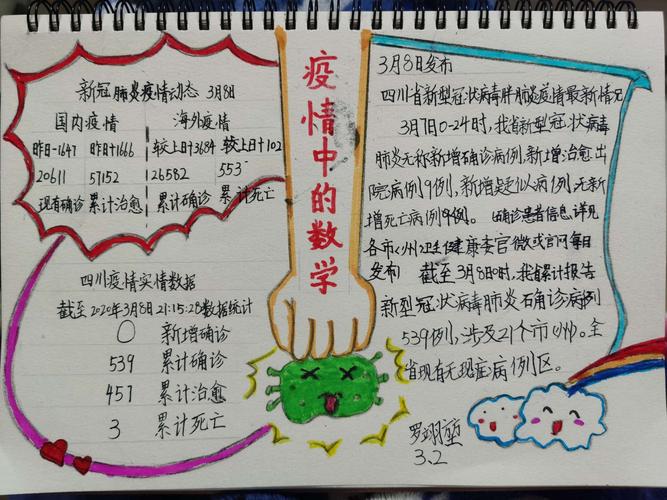 新冠肺炎疫情动态 3月8日
国内疫情 海外疫情
昨日-1647 昨日+1666 较上日+3684 较上日+102
20611 57152 26582 553
现有确诊 累计治愈 累计确诊 累计死亡
四川疫情实情数据
截至2020年3月8日21:15:25数据统计
0 新增确诊
539 累计确诊
457 累计治愈
3 累计死亡
疫情中的数学
3月8日发布
四川省新型冠状病毒肺炎疫情最新情况
3月7日0-24时,我省新型冠状病毒
肺炎无称新增确诊病例,新增治愈出
院病例9例,新增疑似病例,无新
增死亡病例 确诊患者信息,详见
各市(州)卫生健康委官微或官网每日
发布 截至3月8日0时,我省累计报告
新型冠状病毒肺炎确诊病例
539例,涉及21个市(州)。全
省现有无现症病例区。
罗翊堃
3.2